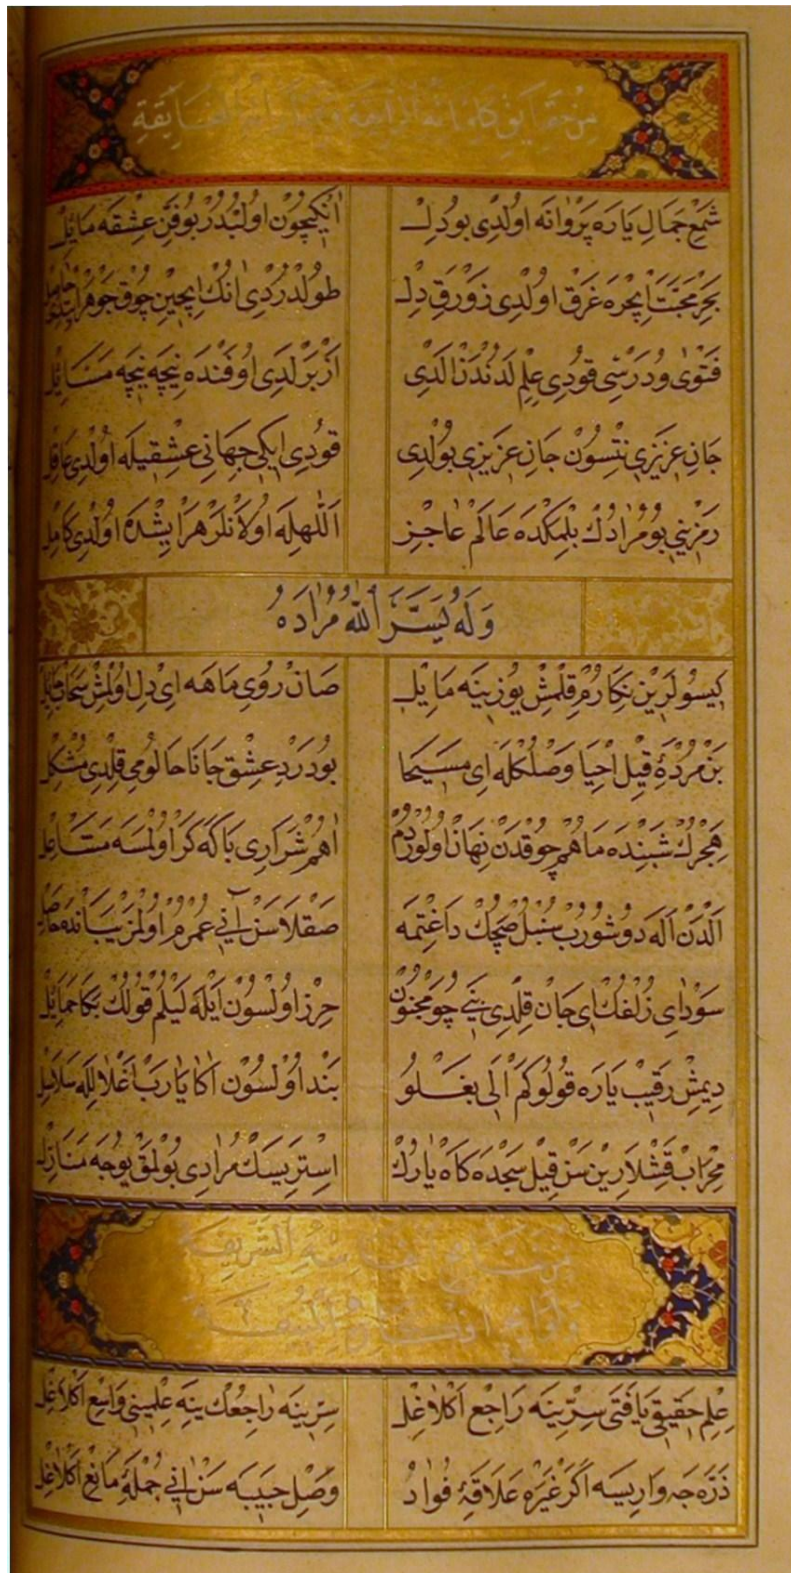 من حقايق كلماته الرايعة
شمع جمال ياره پروانه اولدى بو دل انكيچون اولبدر بو فن عشقه مايل
بحر محبت ايچره غرق اولدى زورق دل طولدردى انك ايچين چوق جوهر
فتوى و درسى قودى علم لدندن الدى ازبرلدى اوفنده نيچه نيچه مسايل
جان عزيزى نتسون جان عزيزى بولدى قودى ايكى جهانى عشقيله اولدى عاقل
رمزينى بو مرادك بلمكده عالم عاجز اللهله اولانلر هر ايشده اولدى كامل
وله يسر الله مراده
كيسولرين نكارم قلمش يوزينه مايل صان روى ماهه اى دل اولمش سحاب حايل
بن مرده قيل احيا وصلكله اى مسيحا بو درد عشق جانا حالومى قلدى مشكل
هجرك شبنده ماهم چوقدن نهان اولوردم اهم شرارى باكه كر اولمسه مشاعل
الدن اله دوشورب سنبل صچك داغتمه صقلا سن انى عمرم اولمز يبانده حاصل
سوداى زلفك اى جان قلدى بنى چو مجنون حرز اولسون ايله ليلم قولك بكا حمايل
ديمش رقيب ياره قولوكم الى بغلو بند اولسون اكا يا رب اغلالله سلاسل
محراب قشلارين سن قيل سجده كاه يارك استريسك مرادى بولمق يوجه منازل
من الشريفة
علم حقيقى يافتى سرينه راجع اكلاغل سرينه راجعك ينه علمينى واسع اكلاغل
ذره جه واريسه اكر غيره علاقه فواد وصل حبيبه سن انى جمله مانع اكلاغل